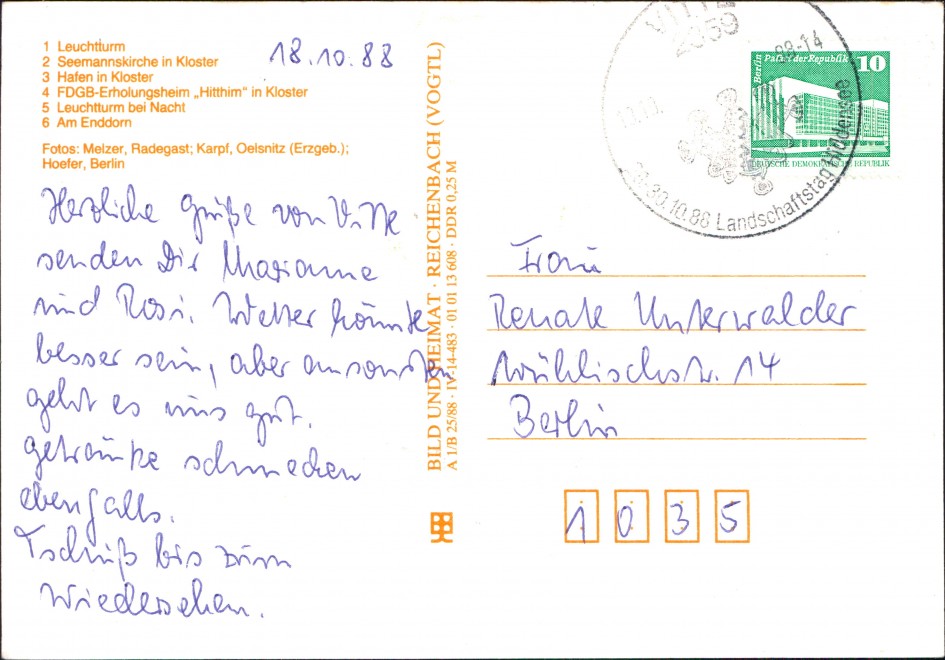 1 Leuchtturm
2 Seemannskirche in Kloster
3 Hafen in Kloster
4 FDGB-Erholungsheim „Hitthim" in Kloster
5 Leuchtturm bei Nacht
6 Am Enddorn
Fotos: Melzer, Radegast; Karpf, Oelsnitz (Erzgeb.);
Hoefer, Berlin
18.10.88
Herzliche Grüße von Vitte
senden Dir Marianne
und Rosi. Wetter könnte
besser sein, aber ansonsten
geht es uns gut.
getränke schmecken
ebenfalls.
Tschüß bis zum
Wiedersehen.
BILD UND HEIMAT · REICHENBACH (VOGTL)
A 1/B 25/88 · IV-14-483 · 01 01 13 608 · DDR 0,25 M
VITTE
2359
88-14
30.10.88 Landschaftstag Hiddensee
Berlin Palast der Republik 10
DEUTSCHE DEMOKRATISCHE REPUBLIK
Frau
Renate Unterwalder
Wühlischstr. 14
Berlin
1035